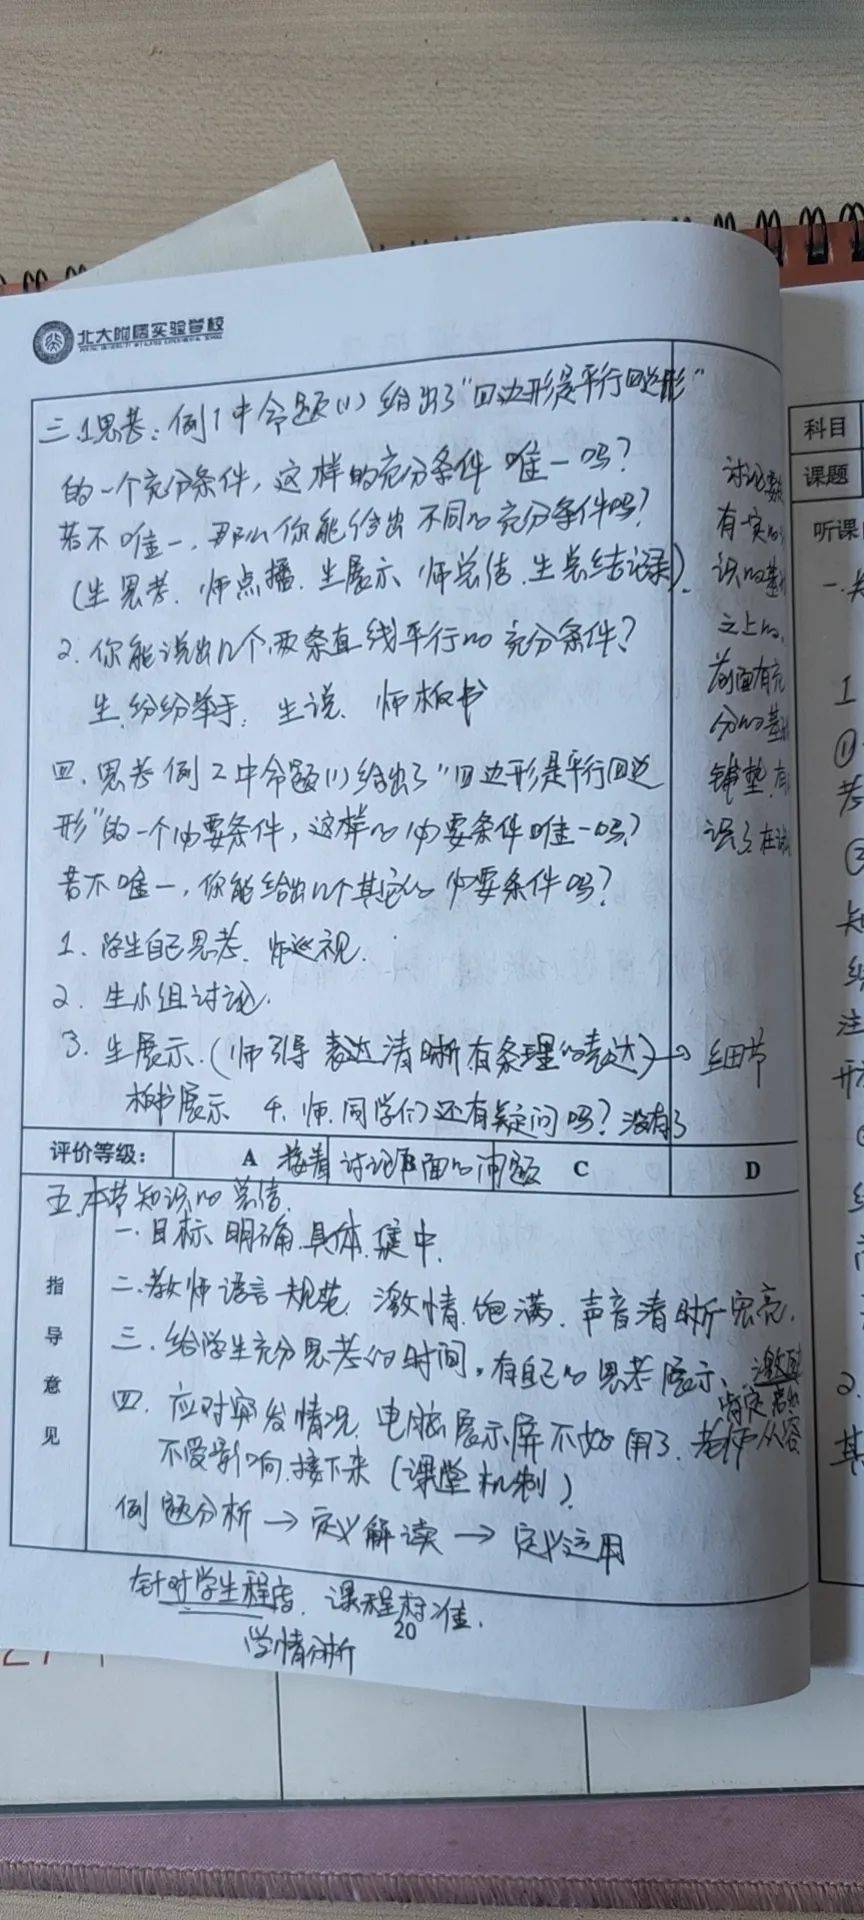 北大附属实验学校
三.1思考：例1中命题(1)给出了"四边形是平行四边形"
的一个充分条件，这样的充分条件唯一吗？
若不唯一，那么你能给出不同的充分条件吗？
(生思考.师点播.生展示 师总结.生总结记录).
2.你能说出几个两条直线平行的充分条件？
生.纷纷举手.生说.师板书
四.思考例2中命题(1)给出了"四边形是平行四边
形"的一个必要条件，这样的必要条件唯一吗？
若不唯一，你能给出几个其它的必要条件吗？
1.学生自己思考.师巡视.
2.生小组讨论.
3.生展示.(师引导表达清晰有条理的表达)→细节
板书展示 4.师.同学们还有疑问吗？没有了
讨论要
有一定的
识的基
之上的.
前面有充
分的基
铺垫.有
识了在
评价等级：
A B C D
接着讨论下面的问题
五.本节知识的总结.
指导意见
一.目标.明确.具体.集中.
二.教师语言规范.激情.饱满.声音清晰宏亮.
三.给学生充分思考的时间，有自己的思考展示.
肯定
四.应对突发情况.电脑展示屏不好用了.老师从容
不受影响.接下来(课堂机制).
例题分析→定义解读→定义运用
针对学生程度.课程标准.
学情分析
20
科目
课题
听课